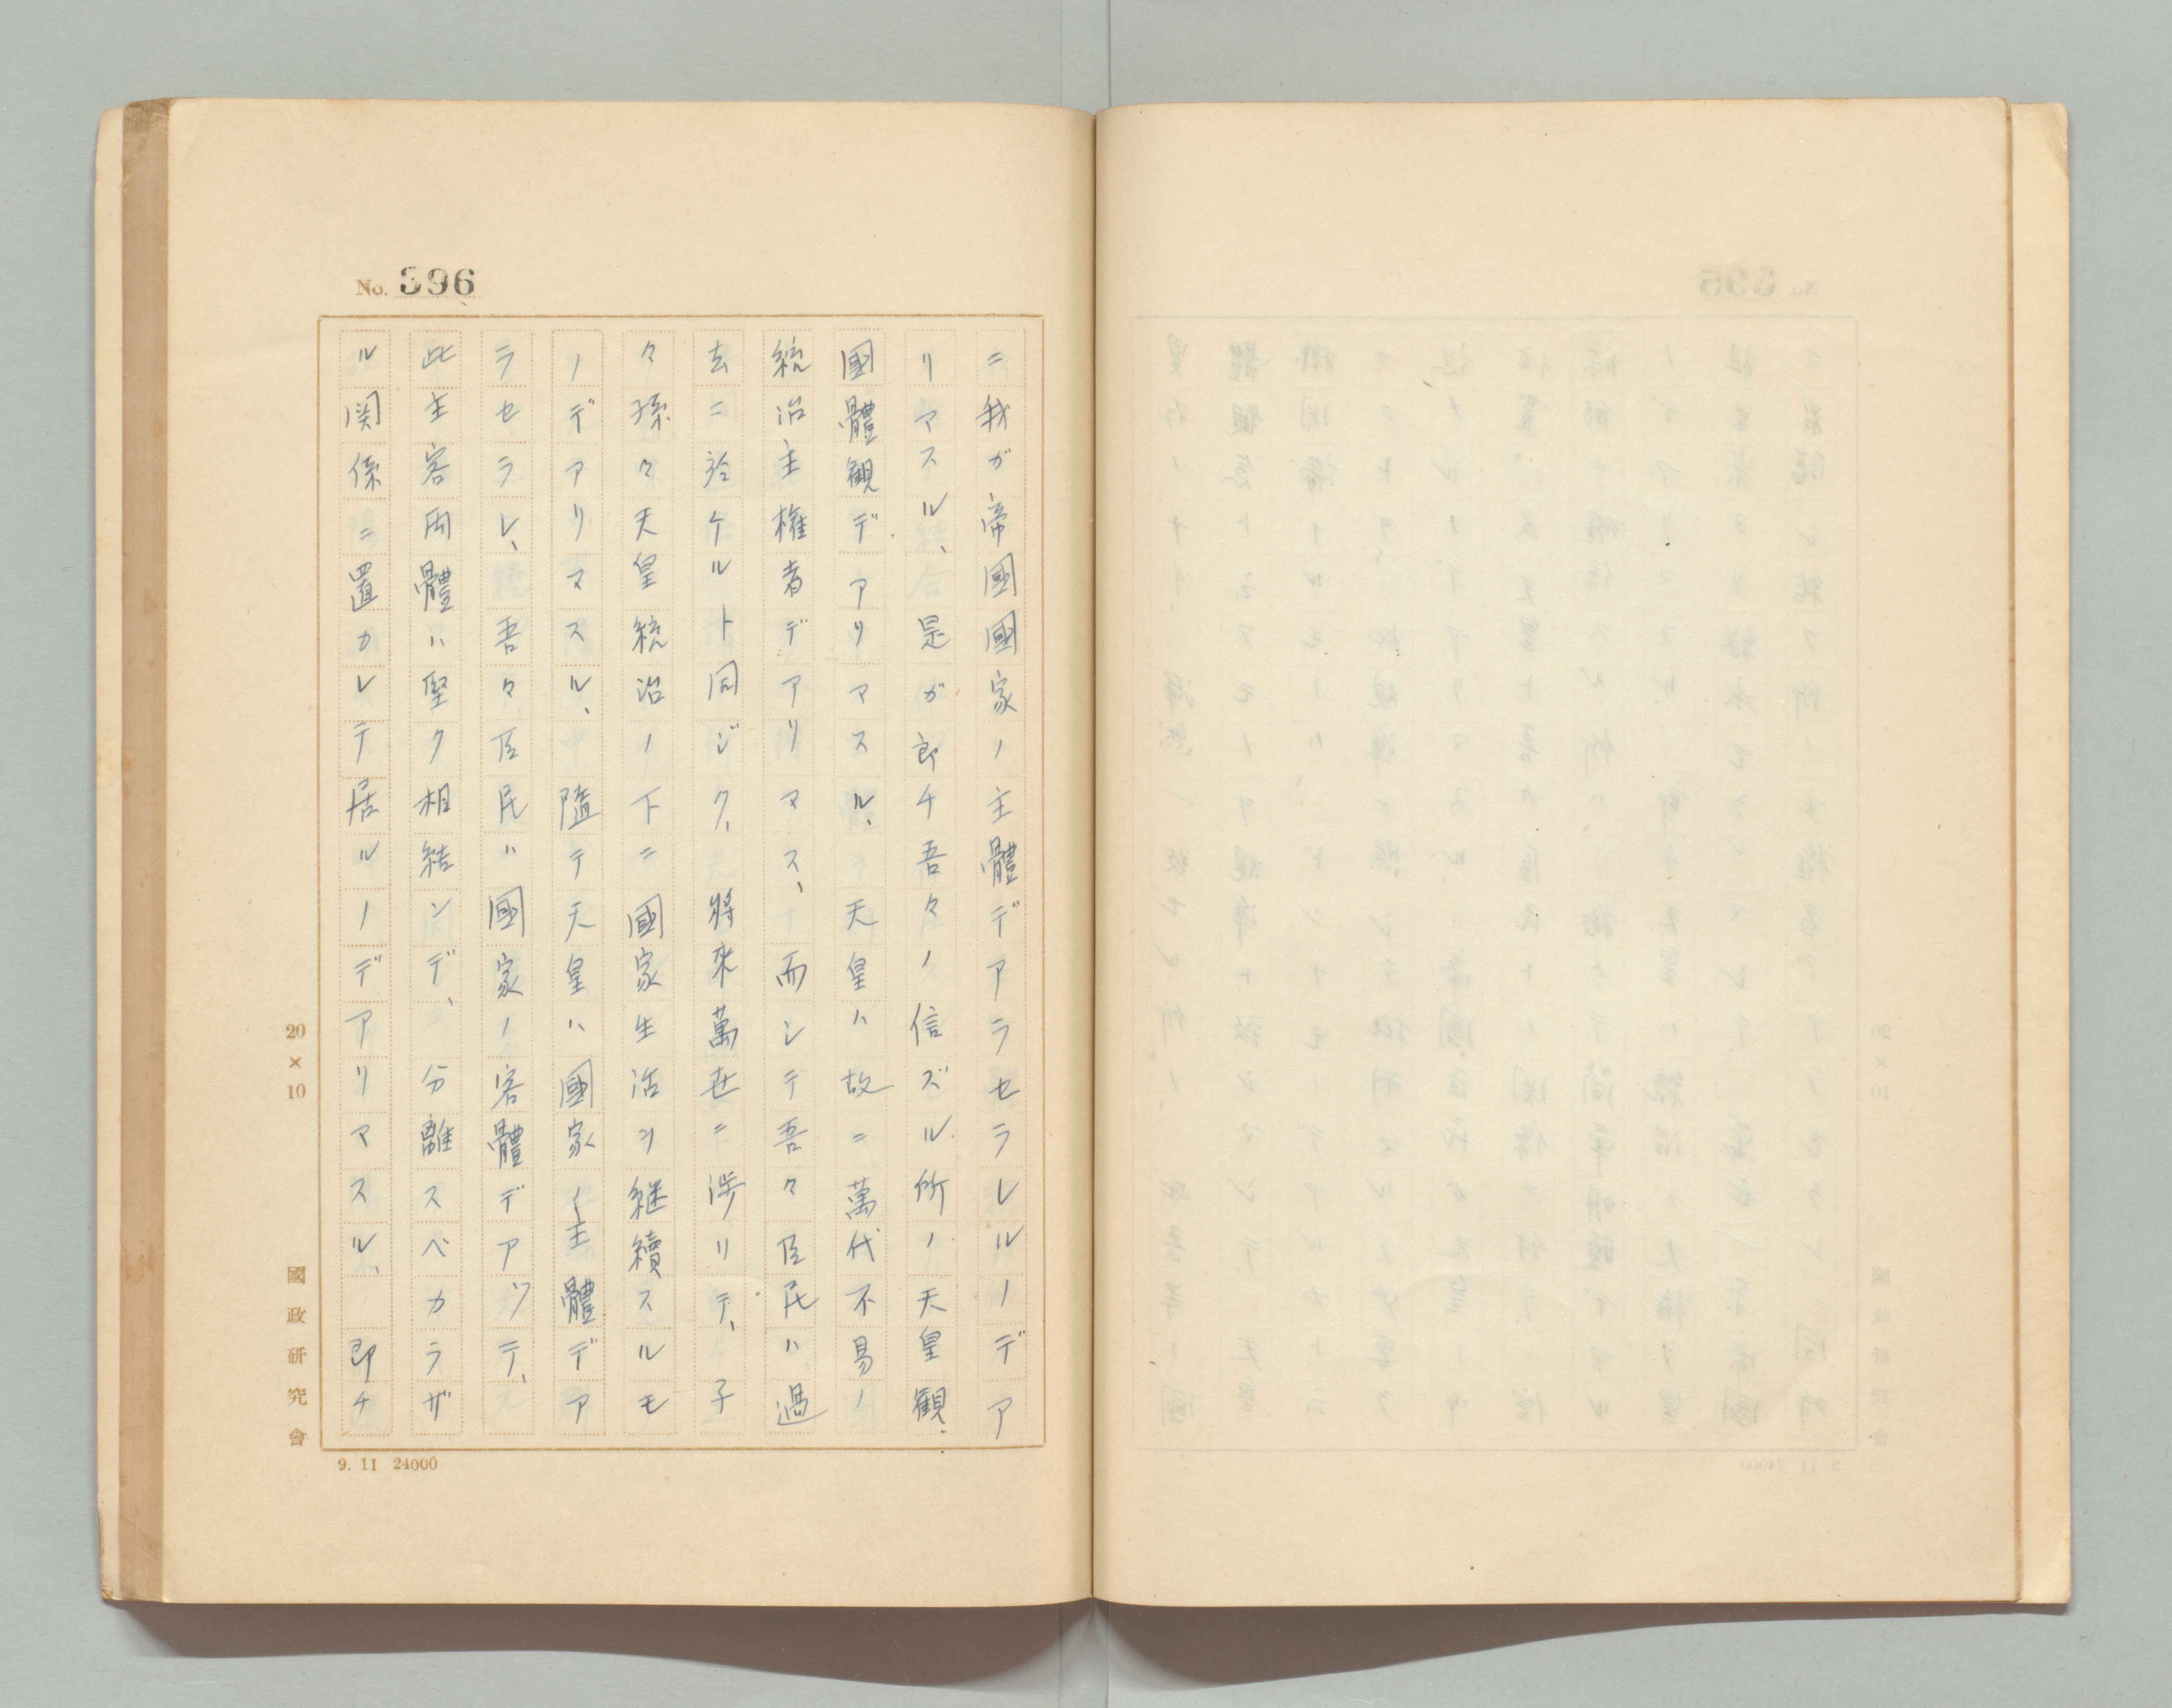 No. 396
ニ我ガ帝國國家ノ主體デアラセラレルノデア
リマスル、是ガ郎チ吾々ノ信ズル所ノ天皇観.
國體観デアリマスル、天皇ハ故ニ萬代不易ノ
統治主権者デアリマス、而シテ吾々臣民ハ、過
去ニ於ケルト同ジク、將來萬世ニ渉リテ、子
々孫々天皇統治ノ下ニ國家生活ヲ継續スルモ
ノデアリマスル、隨テ天皇ハ國家ノ主體デア
ラセラレ、吾々臣民ハ國家ノ客體デアッテ、
此主客両體ハ堅ク相結ンデ、分離スベカラザ
ル関係ニ置カレテ居ルノデアリマスル、即チ
20×10
國政研究會
9. 11 24000